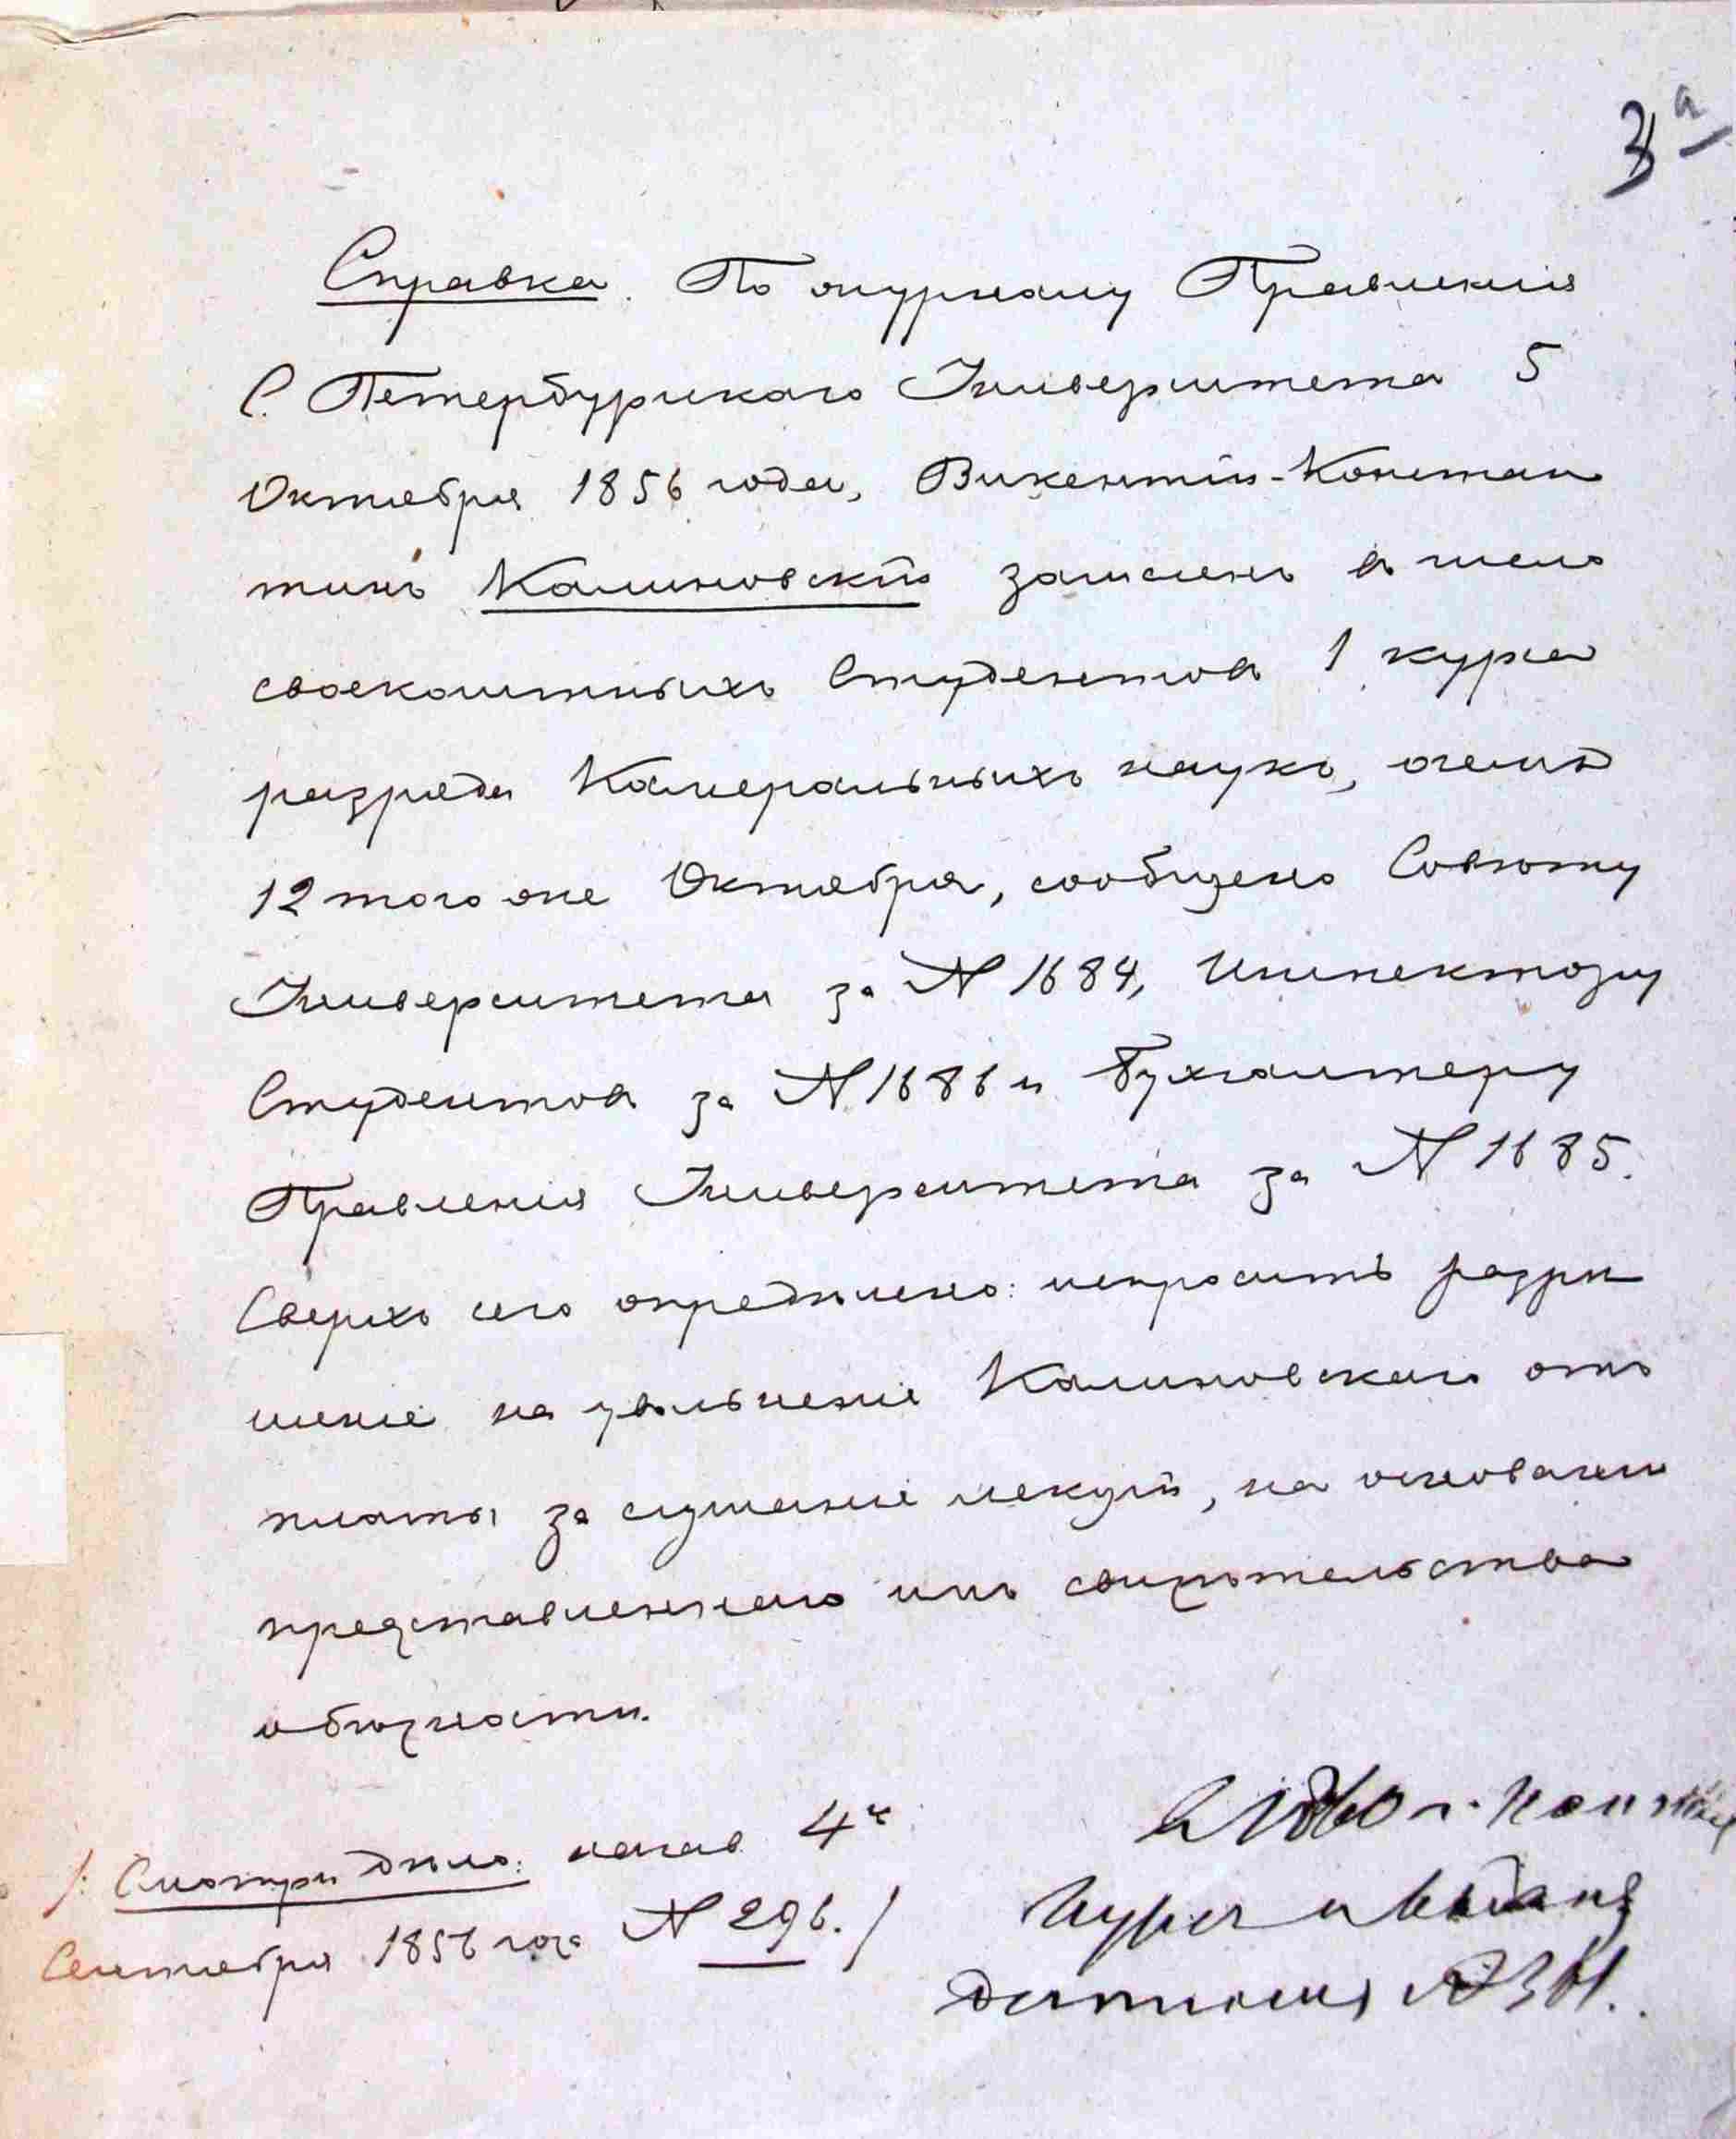 3а
Справка. По журналу Правленія
С. Петербургскаго Университета 5
Октября 1856 года, Викентій-Констан
тинъ Калиновскій зачисленъ въ число
своекоштныхъ Студентовъ 1 курса
разряда Камеральныхъ наукъ, о чемъ
12 того же Октября, сообщено Совѣту
Университета за N 1684, Инспектору
Студентовъ за N 1686 и Бухгалтеру
Правленія Университета за N 1685.
Сверхъ сего опредѣлено: испросить разрѣ
шеніе на увольненіе Калиновскаго отъ
платы за слушаніе лекцій, на основаніи
представленнаго имъ свидѣтельства
о бѣдности.
/: Смотри дѣло: начав. 4го
Сентября 1856 года N 296. /